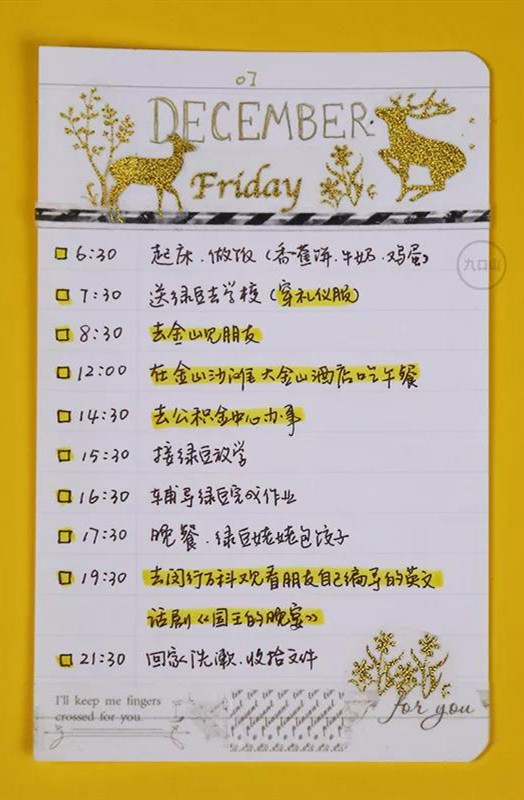 07
DECEMBER
Friday
6:30 起床.做饭(香蕉饼.牛奶.鸡蛋)
九口山
7:30 送绿豆去学校(穿礼仪服)
8:30 去金山见朋友
12:00 在金山沙滩大金山酒店吃午餐
14:30 去公积金中心办事
15:30 接绿豆放学
16:30 辅导绿豆完成作业
17:30 晚餐.绿豆姥姥包饺子
19:30 去闵行万科观看朋友自己编导的英文
话剧《国王的晚宴》
21:30 回家洗漱.收拾文件
I'll keep me fingers
crossed for you.
for you